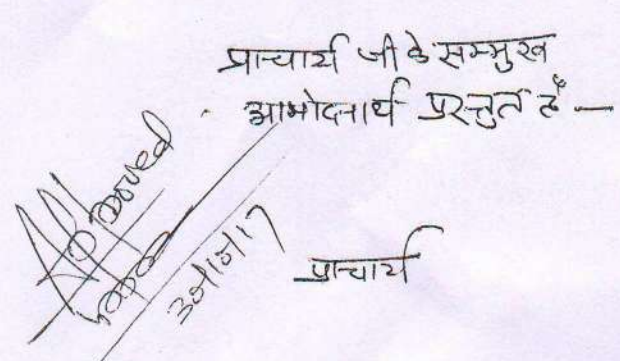 प्राचार्य जी के सम्मुख
आमोदनार्थ प्रस्तुत है —
Approved
30/10/17
प्राचार्य